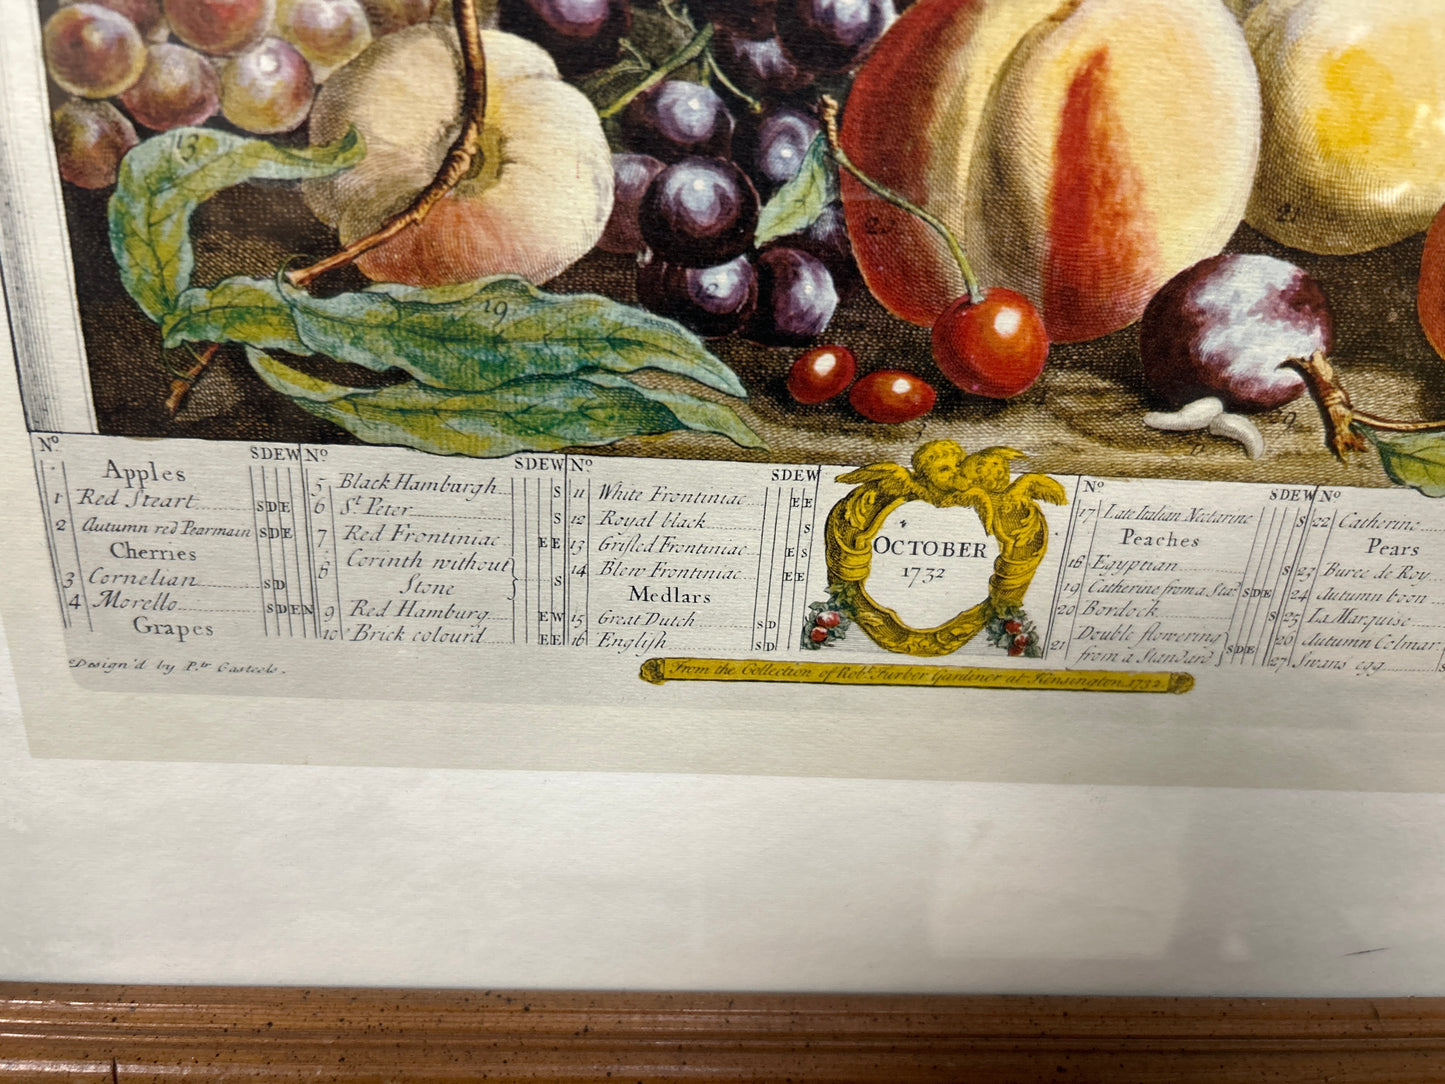 13
19
20
21
19
Nº
SDEW
Apples
1 Red Steart SDE
2 Autumn red Pearmain SDE
Cherries
3 Cornelian SD
4 Morello SDEN
Grapes
Nº
SDEW
5 Black Hamburgh S
6 St Peter S
7 Red Frontiniac EE
8 Corinth without
Stone S
9 Red Hamburg EW
10 Brick colourd EE
Nº
SDEW
11 White Frontiniac EE
12 Royal black S
13 Grisled Frontiniac ES
14 Blew Frontiniac EE
Medlars
15 Great Dutch SD
16 English SD
OCTOBER
1732
Nº
SDEW
17 Late Italian Nectarine S
Peaches
18 Egyptian S
19 Catherine from a Sta.d SDE
20 Bordock S
21 Double flowering
from a Standard SDE
Nº
22 Catherine
Pears
23 Buree de Roy
24 Autumn boon
25 La Marquise
26 Autumn Colmar
27 Swans egg
Design'd by P.tr Casteels.
From the Collection of Robt. Furber Gardiner at Kensington. 1732.